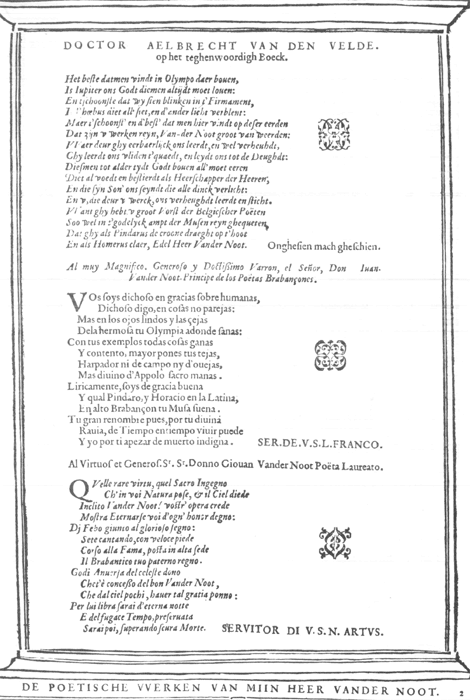 DOCTOR AELBRECHT VAN DEN VELDE.
op het teghenwoordigh Boeck.
Het beste datmen vindt in Olympo daer bouen,
Is Iupiter ons Godt diemen altijdt moet louen:
En tschoonste dat wy sien blincken in t'Firmament,
Is Phœbus diet all' siet, en d'ander licht verblent:
Maer t'schoonst' en d'best' dat men hier vindt op deser eerden
Dat zijn v werken reyn, Van-der Noot groot van weerden:
VVaer deur ghy eerbaerlijck ons leerdt, en wel verheuhdt,
Ghy leerdt ons vlieden t'quaedt, en leydt ons tot de Deughdt:
Diesmen tot alder tydt Godt bouen all' moet eeren
Diet al voedt en bestierdt als Heerschapper der Heeren,
En die syn Son' ons seyndt die alle dinck verlicht:
En v, die deur v werck, ons verheughdt leerdt en sticht.
VVant ghy hebt v groot Vorst der Belgischer Poëten
Soo wel in t'godelyck ampt der Musen reyn ghequeten,
Dat ghy als Pindarus de croone draeght op t'hoot
En als Homerus claer, Edel Heer Vander Noot. Onghesien mach gheschien.
Al muy Magnifico. Generoso y Doctissimo Varron, el Señor, Don Iuan-
Vander Noot. Principe de los Poëtas Brabançones.
VOs soys dichoso en gracias sobre humanas,
Dichoso digo, en cosas no parejas:
Mas en los ojos lindos y las çejas
Dela hermosa tu Olympia adonde sanas:
Con tus exemplos todas cosas ganas
Y contento, mayor pones tus tejas,
Harpador ni de campo ny d'ouejas,
Mas diuino d'Appolo sacro manas.
Liricamente, soys de gracia buena
Y qual Pindaro, y Horacio en la Latina,
En alto Brabançon tu Musa suena.
Tu gran renombre pues, por tu diuina
Rauia, de Tiempo en tiempo viuir puede
Y yo por ti apezar de muerto indigna. SER.DE.V.S.L.FRANCO.
Al Virtuos et Generos. Sr. Sr. Donno Giouan Vander Noot Poëta Laureato.
QVelle rare virtu, quel Sacro Ingegno
Ch'in voi Natura pose, & il Ciel diede
Inclito Vander Noot! vostr' opera crede
Mostra Eternarse voi d'ogn' honor degno:
Di Febo giunto al glorioso segno:
Sete cantando, con veloce piede
Corso alla Fama, posta in alta sede
Il Brabantico tuo paterno regno.
Godi Anuersa del celeste dono
Chet'è concesso del bon Vander Noot,
Che dal ciel pochi, hauer tal gratia ponno:
Per lui libra sarai d'eterna notte
E del fugace Tempo, preseruata
Sarai poi, superando scura Morte. SERVITOR DI V.S.N. ARTVS.
DE POETISCHE VVERKEN VAN MIIN HEER VANDER NOOT.